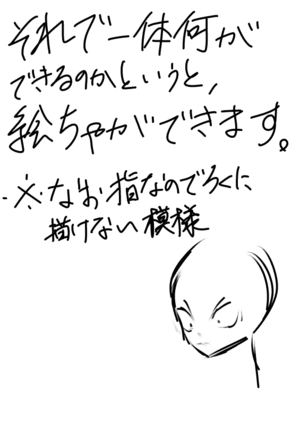 それで一体何が
できるのかというと,
絵ちゃができます。
・※なお指なのでろくに
描けない模様